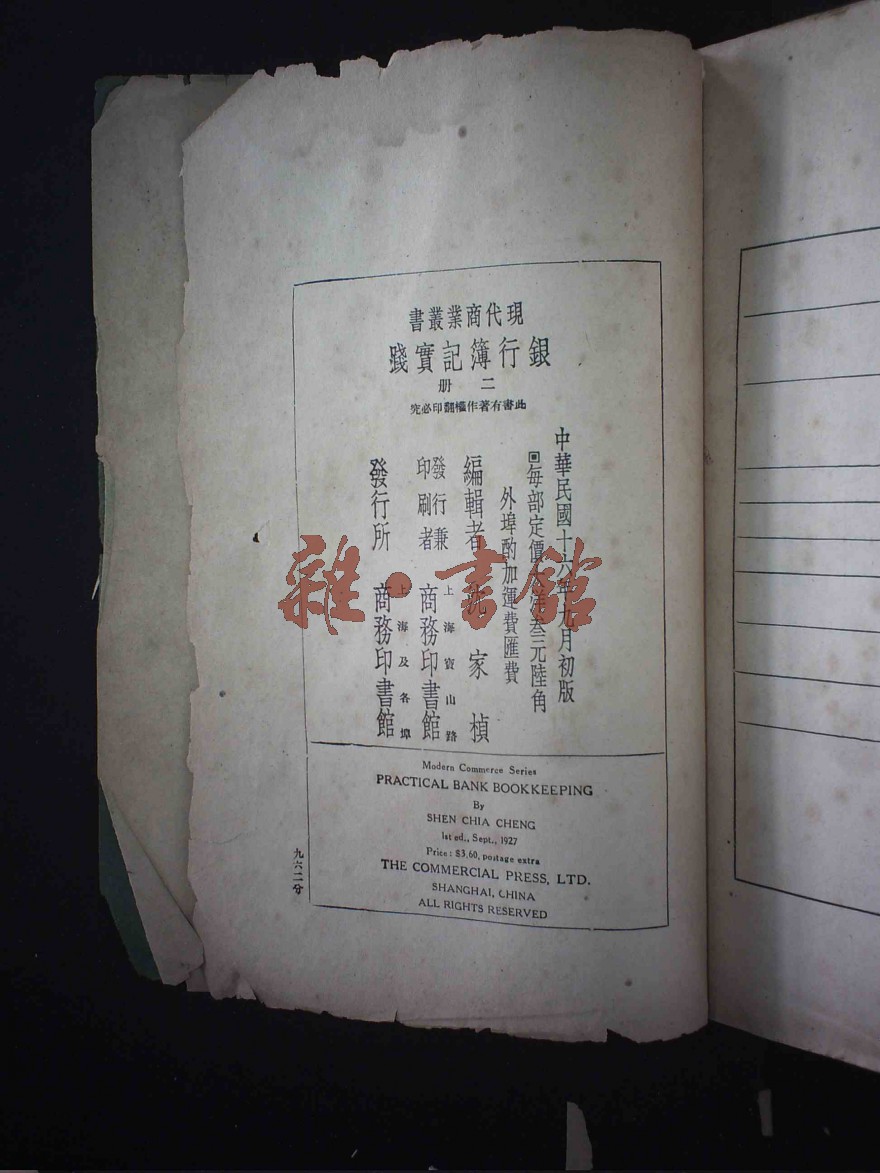 現代商業叢書
銀行簿記實踐
二册
此書有著作權翻印必究
中華民國十六年九月初版
回每部定價大洋叁元陸角
外埠酌加運費匯費
編輯者 沈家楨
發行兼
印刷者
上海寶山路
商務印書館
發行所
上海及各埠
商務印書館
Modern Commerce Series
PRACTICAL BANK BOOKKEEPING
By
SHEN CHIA CHENG
1st ed., Sept., 1927
Price: $3.60, postage extra
THE COMMERCIAL PRESS, LTD.
SHANGHAI, CHINA
ALL RIGHTS RESERVED
九六二分
雜·書館